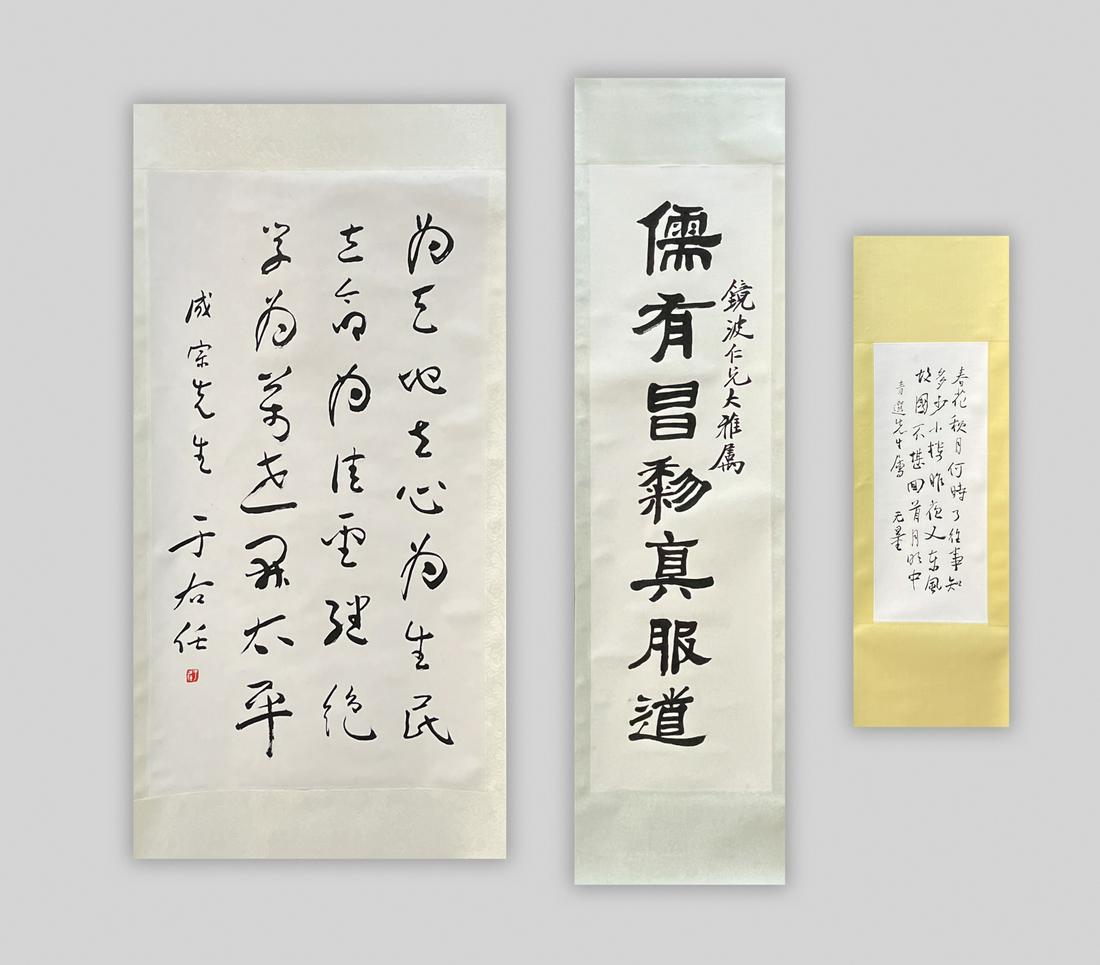 為天地立心為生民
立命為往聖繼絕
學為萬世開太平
成宗先生 于右任
鏡波仁兄大雅屬
儒有昌黎真服道
春花秋月何時了往事知
多少小樓昨夜又東風
故國不堪回首月明中
青選先生屬 无量